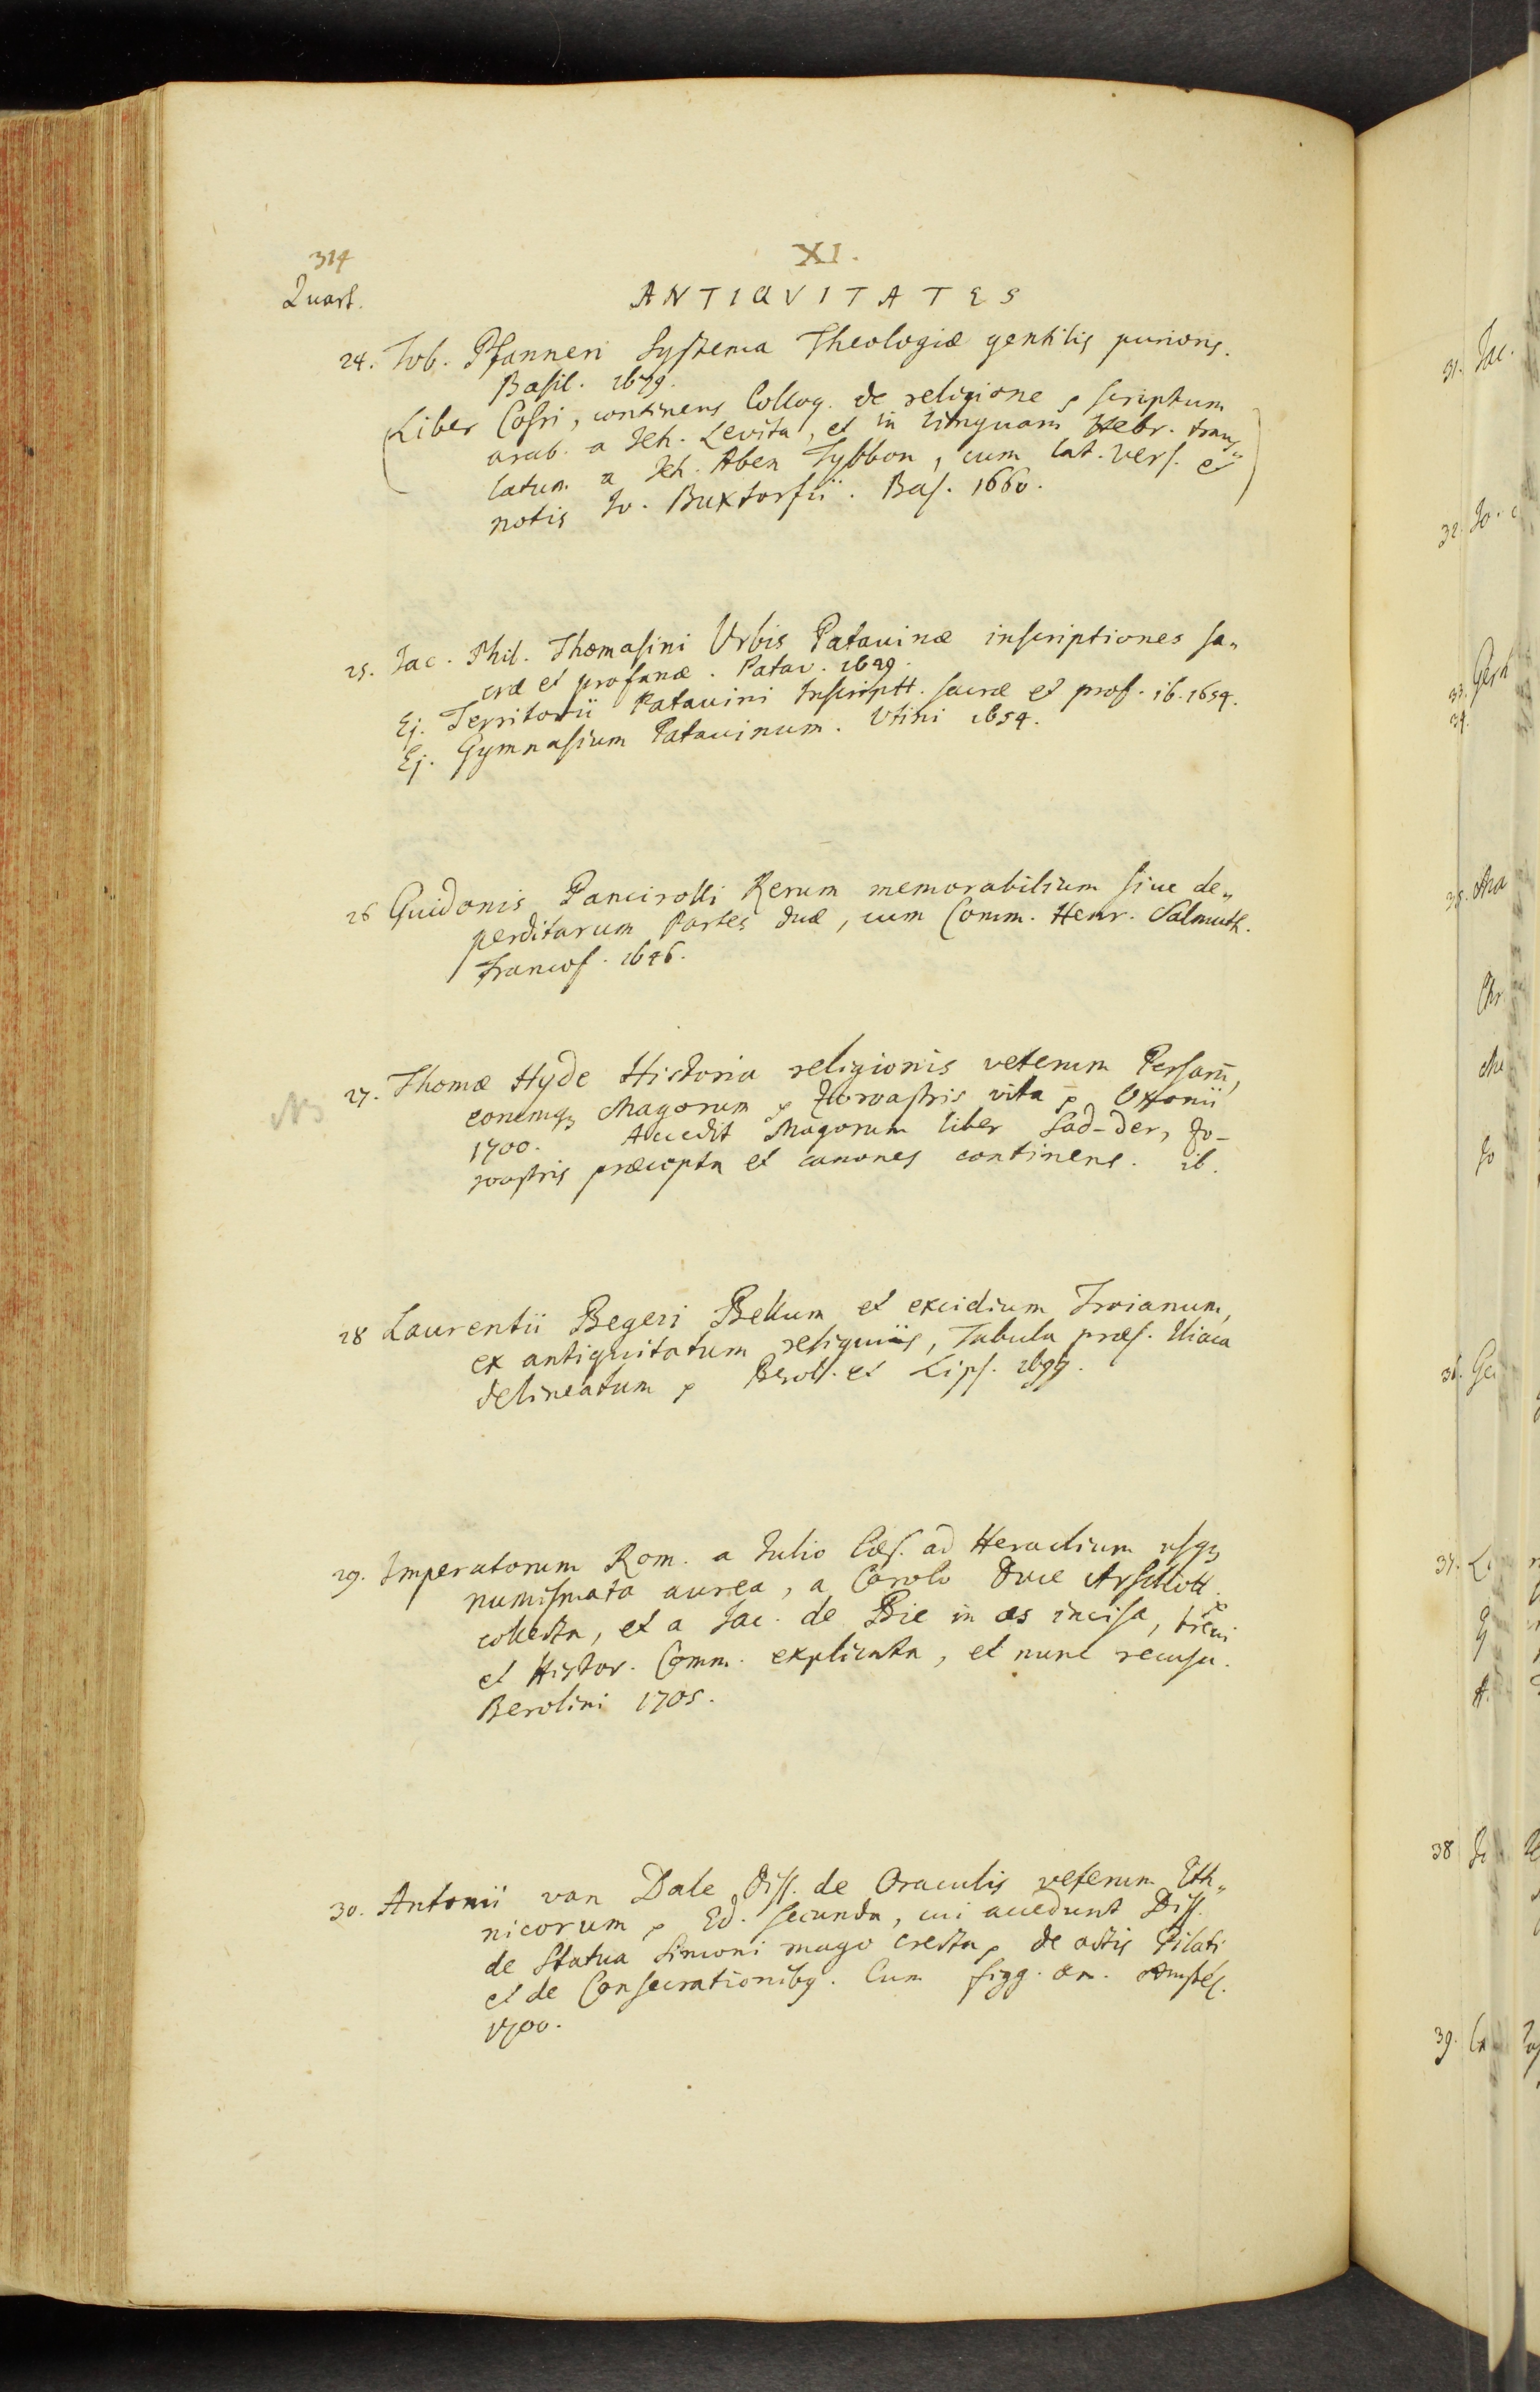 314
XI.
Quart.
ANTIQVITATES
24. Tob. Pfanneri Systema Theologiæ gentilis purioris.
Basil. 1679.
(Liber Cosri, continens Colloq. de religione p scriptum
arab. a Jeh. Levita, et in linguam Hebr. trans„
latum a Jeh. Aben Tybbon, cum lat. vers. et
notis Jo. Buxtorfii. Bas. 1660.)
25. Jac. Phil. Thomasini Urbis Patauinæ inscriptiones sa„
cræ et profanæ. Patav. 1649.
Ej. Territorii Patauini Inscriptt. sacræ et prof. ib. 1654.
Ej. Gymnasium Patauinum. Vtini 1654.
26 Guidonis Pancirolli Rerum memorabilium siue de„
perditarum Partes duæ, cum Comm. Henr. Salmuth.
Francof. 1646.
NB
27. Thomæ Hyde Historia religionis veterum Persarū,
eorumq3 Magorum p Zoroastris vita p Oxonii
1700. Accedit Magorum liber Sad-der, Zo-
roastris præcepta et canones continens. ib.
28 Laurentii Begeri Bellum et excidium Troianum,
ex antiquitatum reliquiis, Tabula præs. Iliaca
delineatum p Berol. et Lips. 1699.
29. Imperatorum Rom. a Julio Cæs. ad Heraclium usq3
numismata aurea, a Carolo Duce Arschott.
collecta, et a Jac. de Bie in æs incisa, breui
et Histor. Comm. explicata, et nunc recusa.
Berolini 1705.
30. Antonii van Dale Diss. de Oraculis veterum Eth„
nicorum p Ed. secunda, cui accedunt Diss.
de Statua Simoni mago erecta p de actis Pilati
et de Consecrationibq. Cum figg. æn. Amstel.
1700.
31. Jac.
32. Jo.
33. Gerh
34.
35. Ma
Chr
Me
Jo
36. Ge
37. L
38
39.